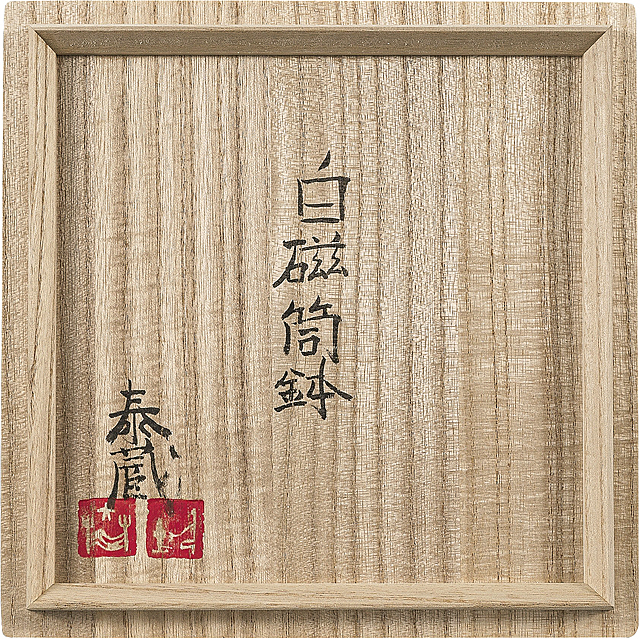 白磁筒鉢
泰蔵